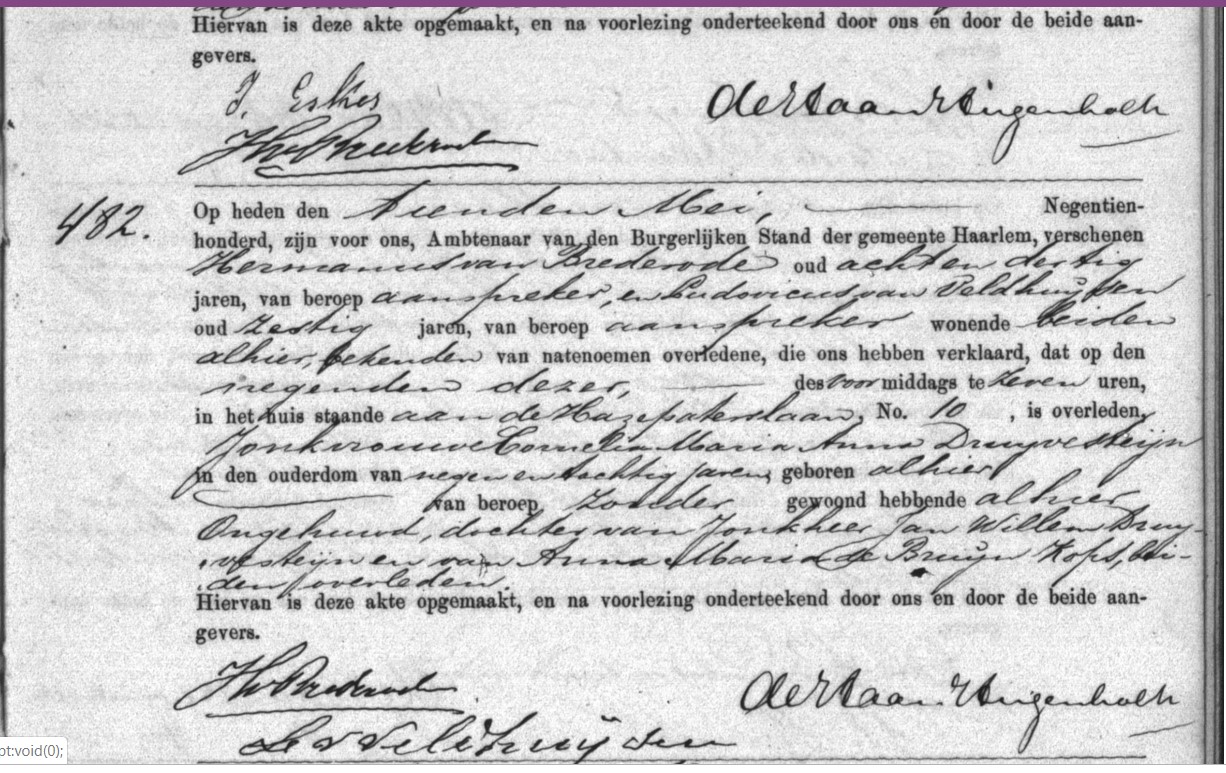 Hiervan is deze akte opgemaakt, en na voorlezing onderteekend door ons en door de beide aan-
gevers.
J. Eskes
de Haan Hugenholtz
HvBrederode
482.
Op heden den tienden Mei, Negentien-
honderd, zijn voor ons, Ambtenaar van den Burgerlijken Stand der gemeente Haarlem, verschenen
Hermanus van Brederode oud acht en dertig
jaren, van beroep aanspreker, en Ludovicus van Veldhuijsen
oud zestig jaren, van beroep aanspreker wonende beiden
alhier, bekenden van natenoemen overledene, die ons hebben verklaard, dat op den
negenden dezer, des voormiddags te zeven uren,
in het huis staande aan de Hazepaterslaan, No. 10, is overleden,
Jonkvrouwe Cornelia Maria Anna Druyvesteijn
in den ouderdom van negen en tachtig jaren, geboren alhier
van beroep zonder gewoond hebbende alhier
Ongehuwd, dochter van Jonkheer Jan Willem Druy-
vesteijn en van Anna Maria de Bruijn Kops, bei-
den overleden.
Hiervan is deze akte opgemaakt, en na voorlezing onderteekend door ons en door de beide aan-
gevers.
HvBrederode
de Haan Hugenholtz
L v Veldhuijsen
pt:void(0);